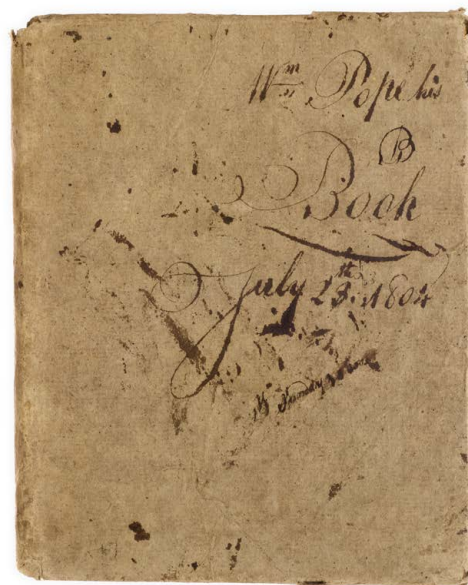 Wm Pope his
B
Book
July 23th. 1804